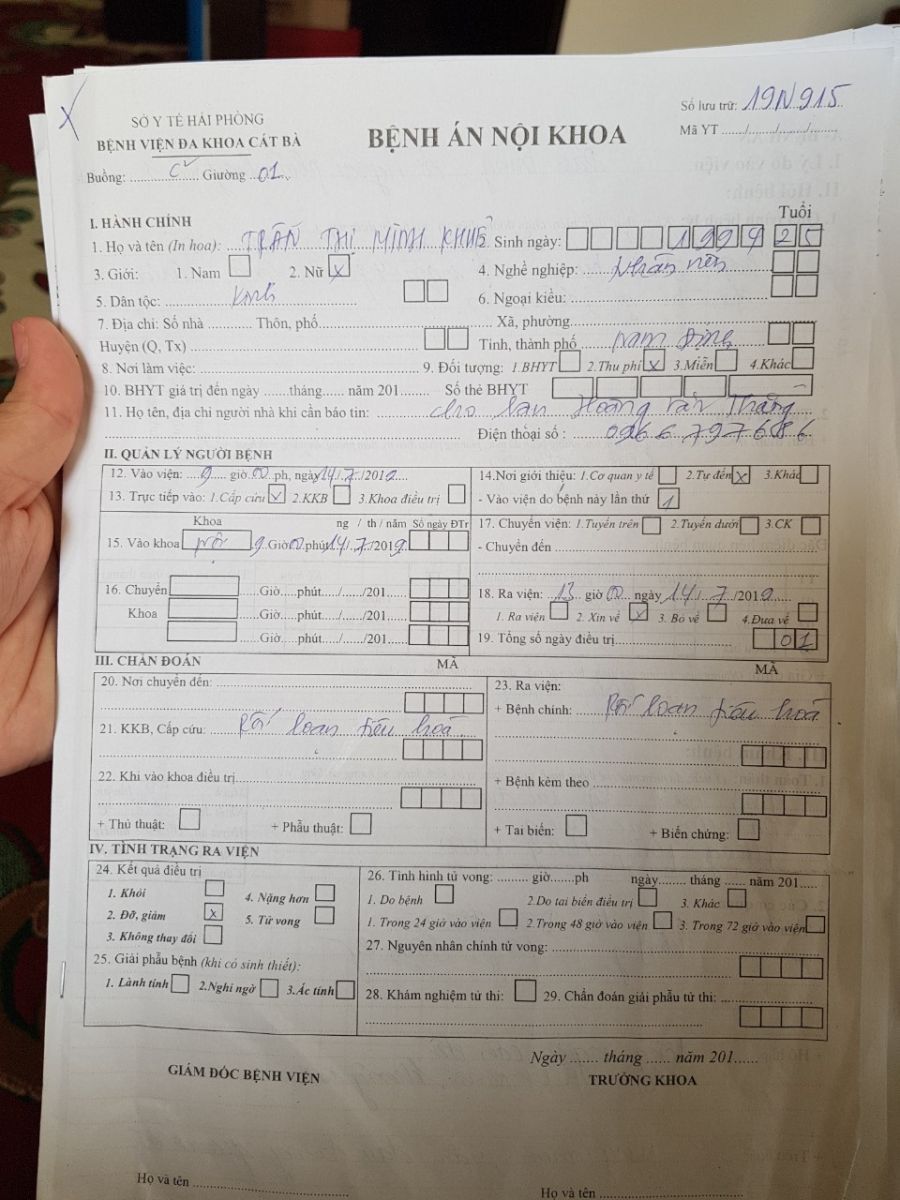 SỞ Y TẾ HẢI PHÒNG
BỆNH VIỆN ĐA KHOA CÁT BÀ
BỆNH ÁN NỘI KHOA
Số lưu trữ: 19N915
Mã YT ...../......./......./........
Buồng: ........... Giường ..01..
I. HÀNH CHÍNH Tuổi
1. Họ và tên (In hoa): TRẦN THỊ MINH KHUÊ 2. Sinh ngày: 1994 25
3. Giới: 1. Nam 2. Nữ X 4. Nghề nghiệp: Nhân viên
5. Dân tộc: Kinh 6. Ngoại kiều:
7. Địa chỉ: Số nhà ............ Thôn, phố............ Xã, phường............
Huyện (Q, Tx) ............ Tỉnh, thành phố Nam Định
8. Nơi làm việc: ............ 9. Đối tượng: 1.BHYT 2.Thu phí X 3.Miễn 4.Khác
10. BHYT giá trị đến ngày ......tháng...... năm 201........ Số thẻ BHYT
11. Họ tên, địa chỉ người nhà khi cần báo tin: Hoàng Văn Thắng
Điện thoại số : 0966797686
II. QUẢN LÝ NGƯỜI BỆNH
12. Vào viện: 9 giờ 00 ph, ngày 14/7/2019
13. Trực tiếp vào: 1.Cấp cứu V 2.KKB 3.Khoa điều trị
14.Nơi giới thiệu: 1.Cơ quan y tế 2.Tự đến X 3.Khác
- Vào viện do bệnh này lần thứ 1
Khoa ng / th / năm Số ngày ĐTr
15. Vào khoa Nội 9 Giờ 00 phút 14/7/2019
16. Chuyển ......Giờ.....phút...../....../201......
Khoa ......Giờ.....phút...../....../201......
......Giờ.....phút...../....../201......
17. Chuyển viện: 1.Tuyến trên 2.Tuyến dưới 3.CK
- Chuyển đến
18. Ra viện: 13 giờ 00 ngày 14/7/2019
1. Ra viện 2. Xin về V 3. Bỏ về 4.Đưa về
19. Tổng số ngày điều trị 01
III. CHẨN ĐOÁN MÃ MÃ
20. Nơi chuyển đến:
21. KKB, Cấp cứu: Rối loạn tiêu hoá
22. Khi vào khoa điều trị
+ Thủ thuật: + Phẫu thuật:
23. Ra viện:
+ Bệnh chính: Rối loạn tiêu hoá
+ Bệnh kèm theo
+ Tai biến: + Biến chứng:
IV. TÌNH TRẠNG RA VIỆN
24. Kết quả điều trị
1. Khỏi 4. Nặng hơn
2. Đỡ, giảm X 5. Tử vong
3. Không thay đổi
25. Giải phẫu bệnh (khi có sinh thiết):
1. Lành tính 2.Nghi ngờ 3.Ác tính
26. Tình hình tử vong: ......... giờ......ph ngày........ tháng ...... năm 201.....
1. Do bệnh 2.Do tai biến điều trị 3. Khác
1. Trong 24 giờ vào viện 2.Trong 48 giờ vào viện 3. Trong 72 giờ vào viện
27. Nguyên nhân chính tử vong:
28. Khám nghiệm tử thi: 29. Chẩn đoán giải phẫu tử thi:
Ngày ....... tháng ...... năm 201......
GIÁM ĐỐC BỆNH VIỆN TRƯỞNG KHOA
Họ và tên Họ và tên